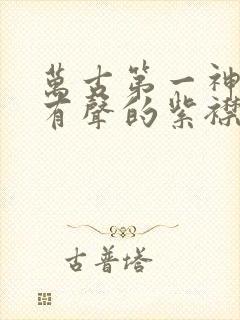 萬古第一神
有聲的紫襟
古普塔